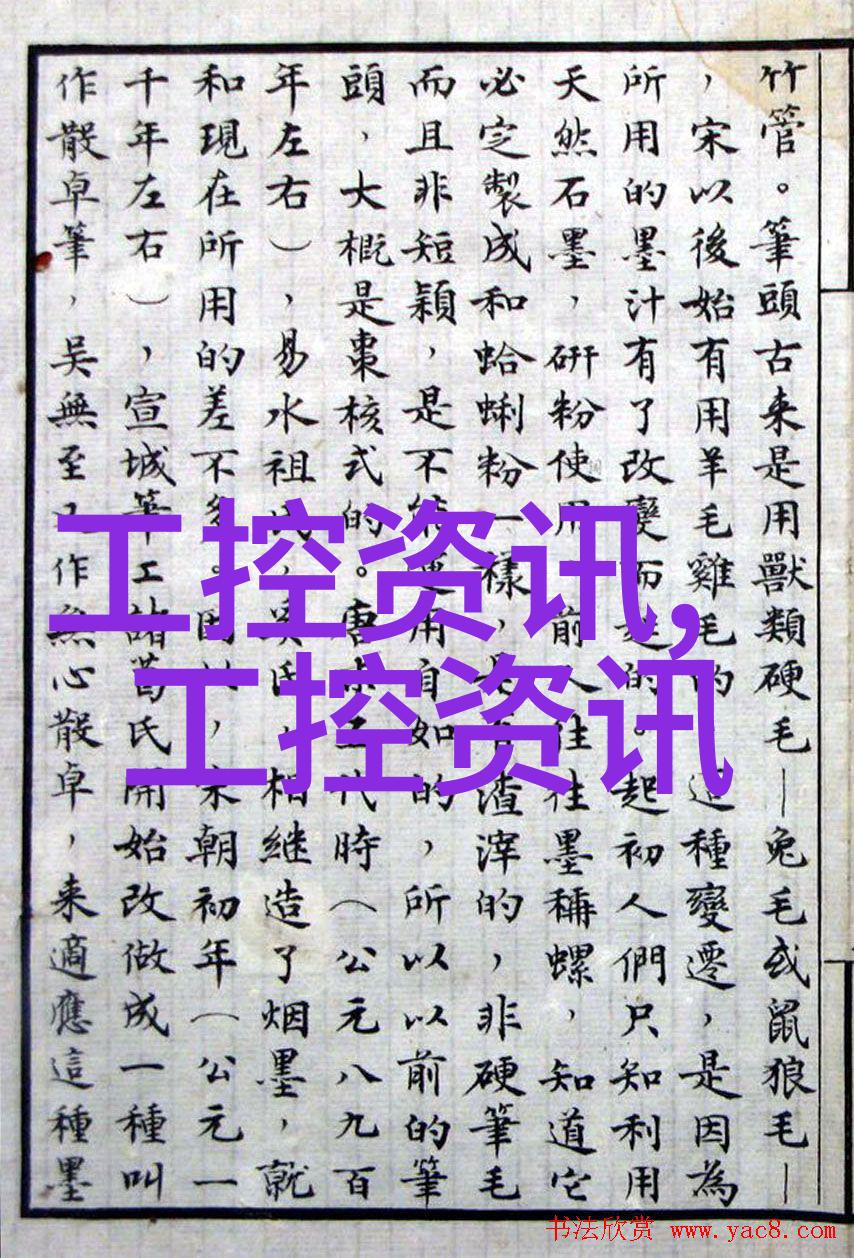 竹管。筆頭古来是用獸類硬毛—兔毛或鼠狼毛—
，宋以後始有用羊毛雞毛的 這種變遷，是因為
所用的墨汁有了改變而起的。起初人們只知利用
天然石墨，研粉使用 前人往往墨稱螺，知道它
必定製成和蛤蜊粉一樣，是有渣滓的，非硬筆毛
而且非短穎，是不能運用自如的，所以以前的筆
頭，大概是棗核式的。唐末五代時（公元八九百
年左右），易水祖氏，奚氏，相继造了烟墨，就
和現在所用的差不多。因此，宋朝初年（公元一
千年左右），宣城筆工諸葛氏開始改做成一種叫
作散卓筆，吴無至又作無心散卓，来適應這種墨
工控资讯,
工控资讯
书法欣赏 www.yac8.com